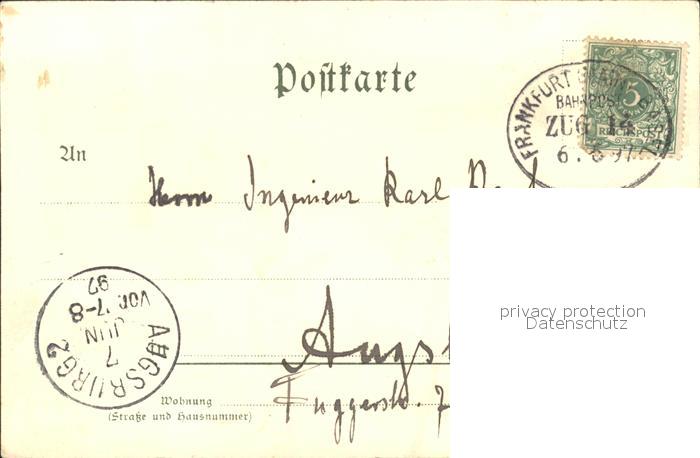 Postkarte
FRANKFURT
BAHNPOST
ZUG 14
6. 6 97
5
REICHSPOST
An
Herrn Ingenieur Karl
97
VOR. 7-8
JUN
7
AUGSBURG 2
Augs
Fuggerstr. 7
Wohnung
(Straße und Hausnummer)
privacy protection
Datenschutz